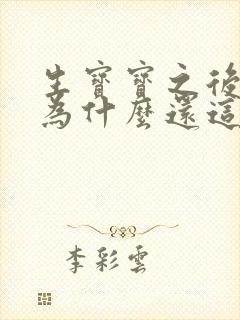 生寶寶之後
為什麼還這
李彩雲